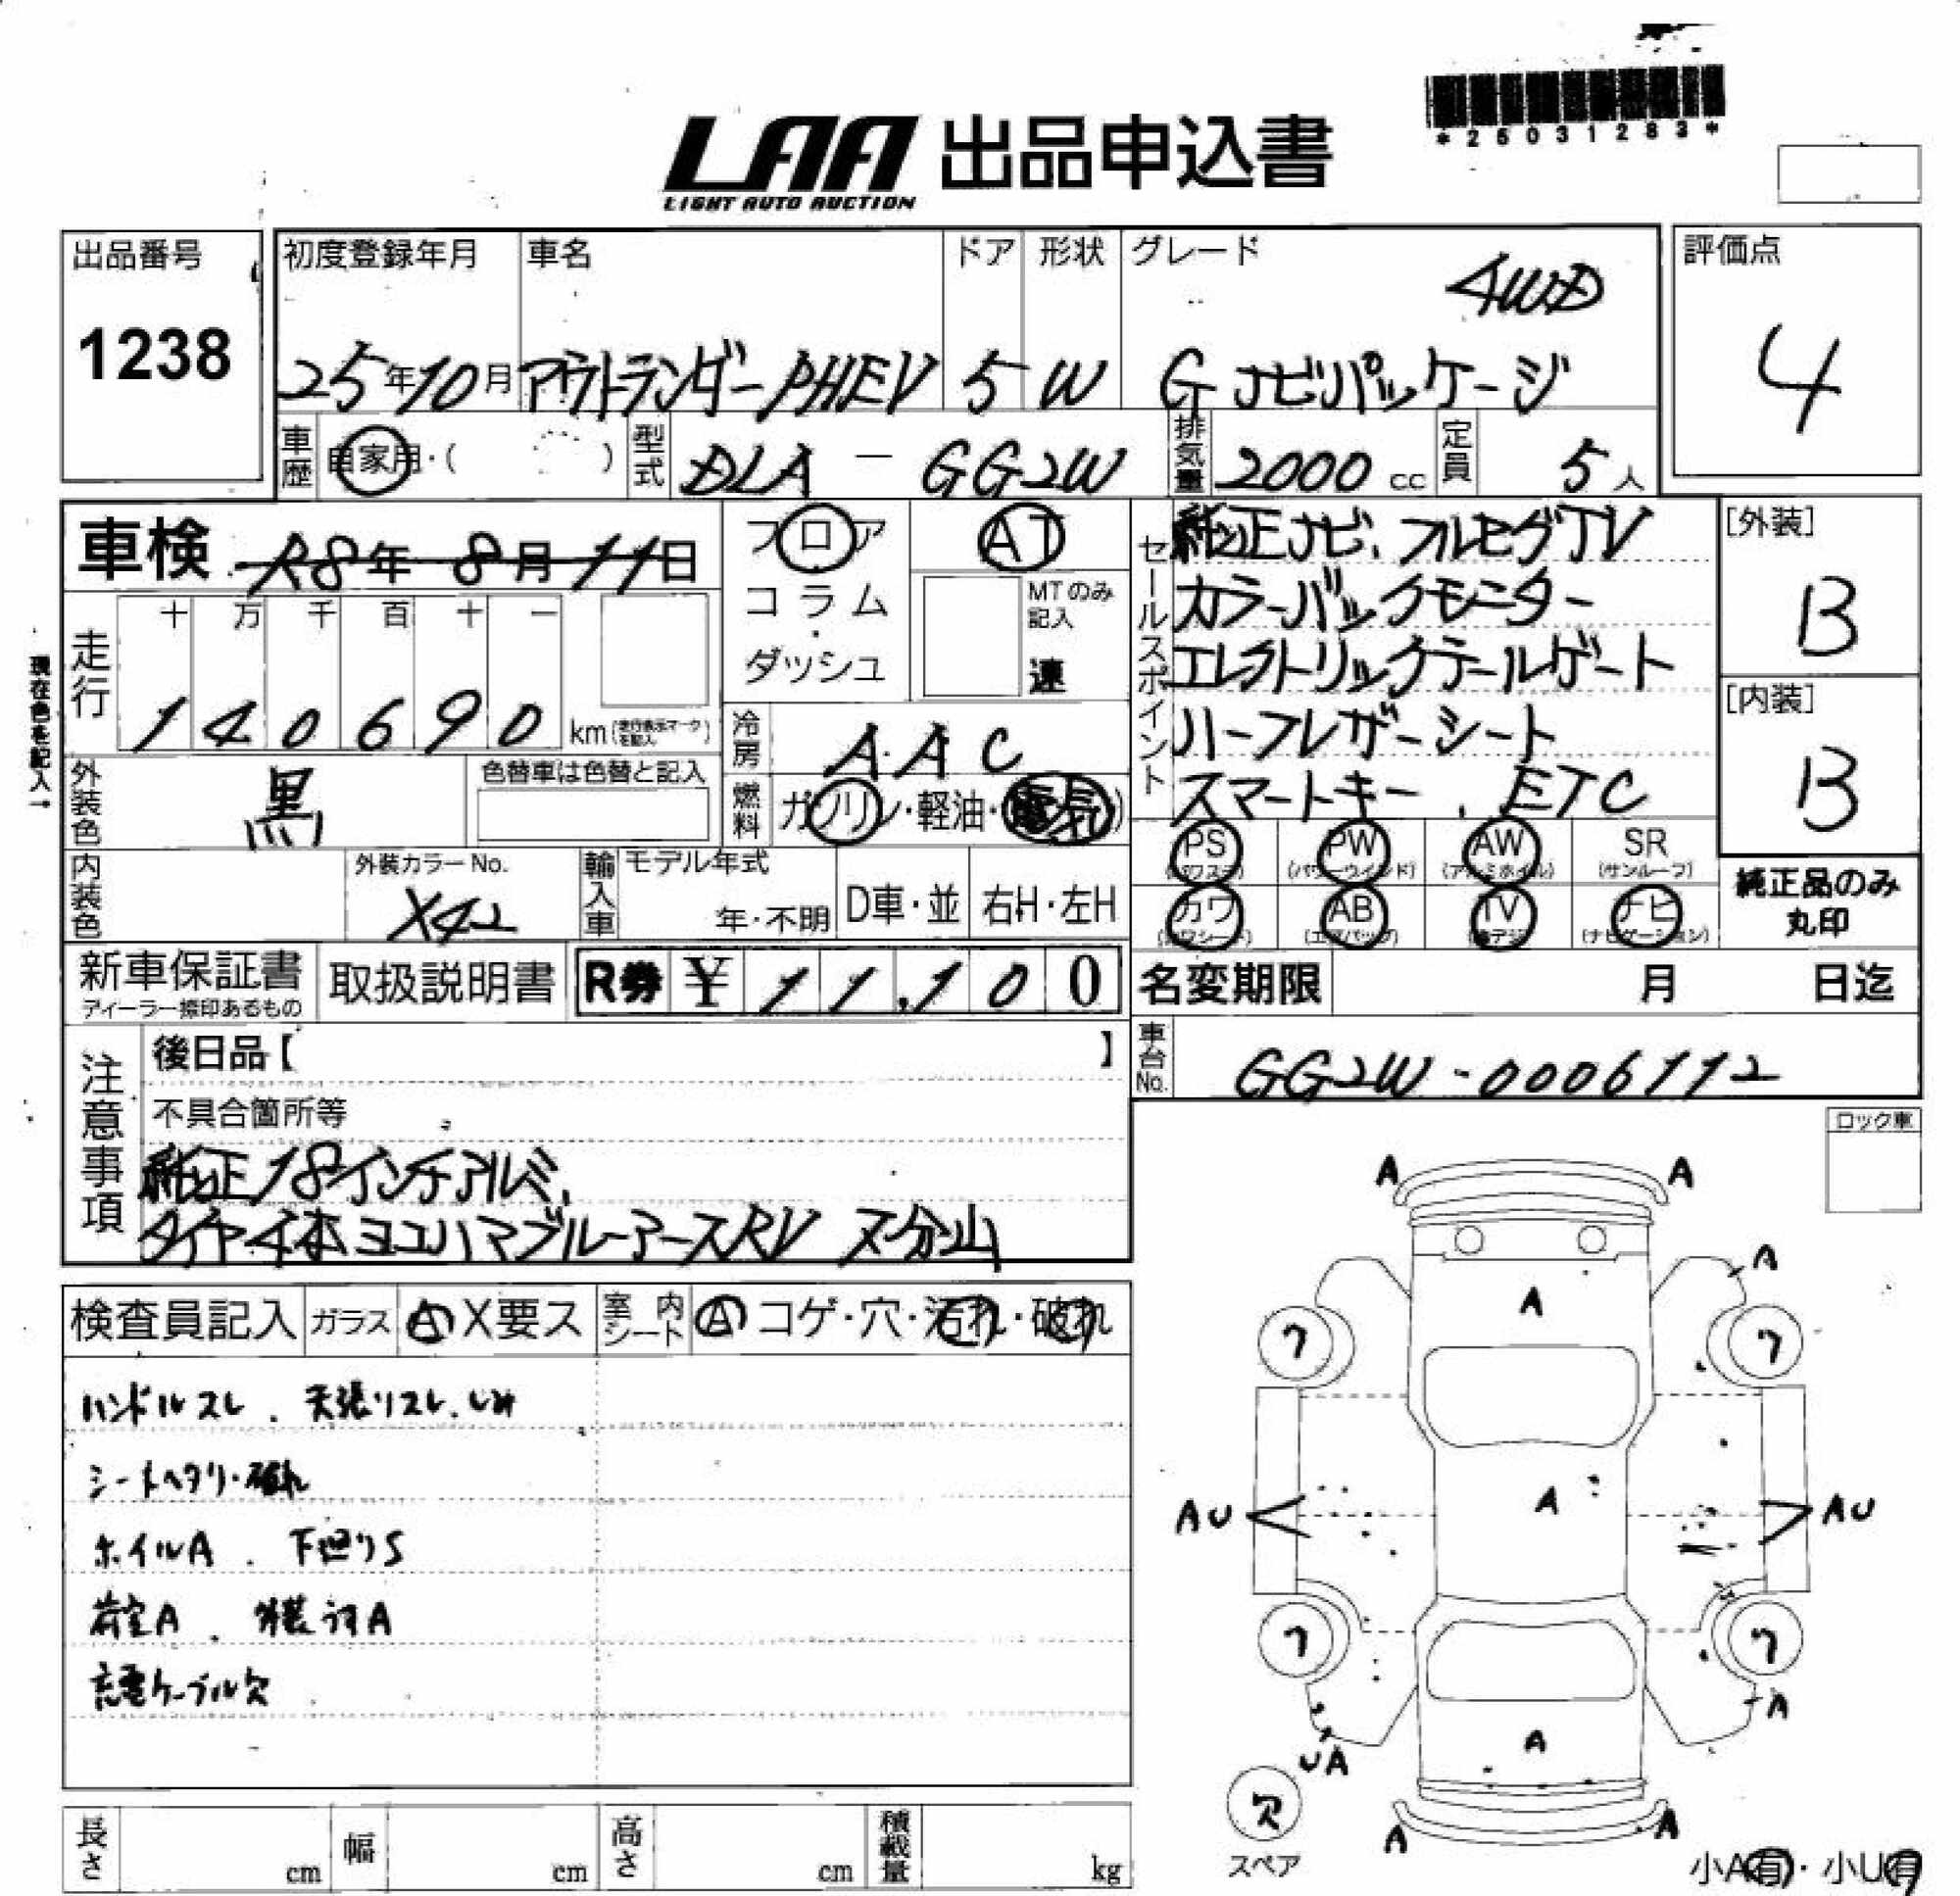 *25031283*
LAA 出品申込書
LIGHT AUTO AUCTION
出品番号
1238
初度登録年月
25年10月
車名
アウトランダーPHEV
ドア
5
形状
W
グレード
4WD
G ナビパッケージ
評価点
4
車歴
自家用・( )
型式
DLA - GG2W
排気量
2000 cc
定員
5人
車検 R8年 8月 11日
フロア
コラム
・
ダッシュ
AT
MTのみ
記入
速
セールスポイント
純正ナビ、フルセグTV
カラーバックモニター
エレクトリックテールゲート
ハーフレザーシート
スマートキー、ETC
[外装]
B
[内装]
B
走行
十 万 千 百 十 一
1 4 0 6 9 0 km (走行表示マークを記入)
現在色を記入→
外装色
黒
色替車は色替と記入
冷房
A A C
燃料
ガソリン・軽油・(電気)
内装色
外装カラーNo.
X42
輸入車
モデル年式
年・不明
D車・並
右H・左H
PS
(パワステ)
PW
(パワーウインド)
AW
(アルミホイル)
SR
(サンルーフ)
カワ
(カワシート)
AB
(エアバッグ)
TV
(地デジ)
ナビ
(ナビゲーション)
純正品のみ
丸印
新車保証書
取扱説明書
R券 ¥ 1 1,1 0 0
名変期限 月 日迄
車台No.
GG2W-0006112
注意事項
後日品【 】
不具合箇所等
純正18インチアルミ、
タイヤ4本ヨコハマブルーアースRV 7分山
ロック車
検査員記入
ガラス
A X要ス
室内シート
A コゲ・穴・汚れ・破れ
ハンドルスレ、天張リスレ、しみ
シートヘタリ・破れ
ホイルA、下廻りS
荷室A、外装うすA
充電ケーブル欠
A A
A
A
7 7
AU A AU
7 7
A
UA
A
欠
スペア
A A
小A有・小U有
長さ cm
幅 cm
高さ cm
積載量 kg